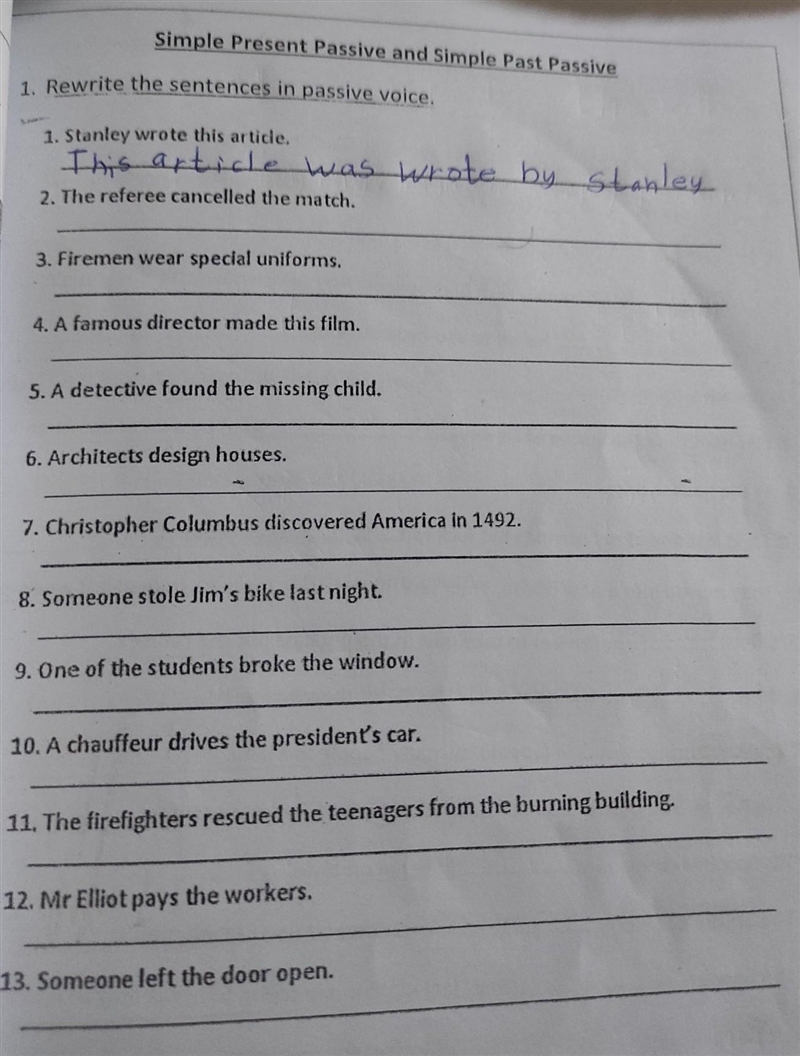 Simple Present Passive and Simple Past Passive
1. Rewrite the sentences in passive voice.
1. Stanley wrote this article.
This article was wrote by Stanley
2. The referee cancelled the match.
3. Firemen wear special uniforms.
4. A famous director made this film.
5. A detective found the missing child.
6. Architects design houses.
7. Christopher Columbus discovered America in 1492.
8. Someone stole Jim's bike last night.
9. One of the students broke the window.
10. A chauffeur drives the president's car.
11. The firefighters rescued the teenagers from the burning building.
12. Mr Elliot pays the workers.
13. Someone left the door open.